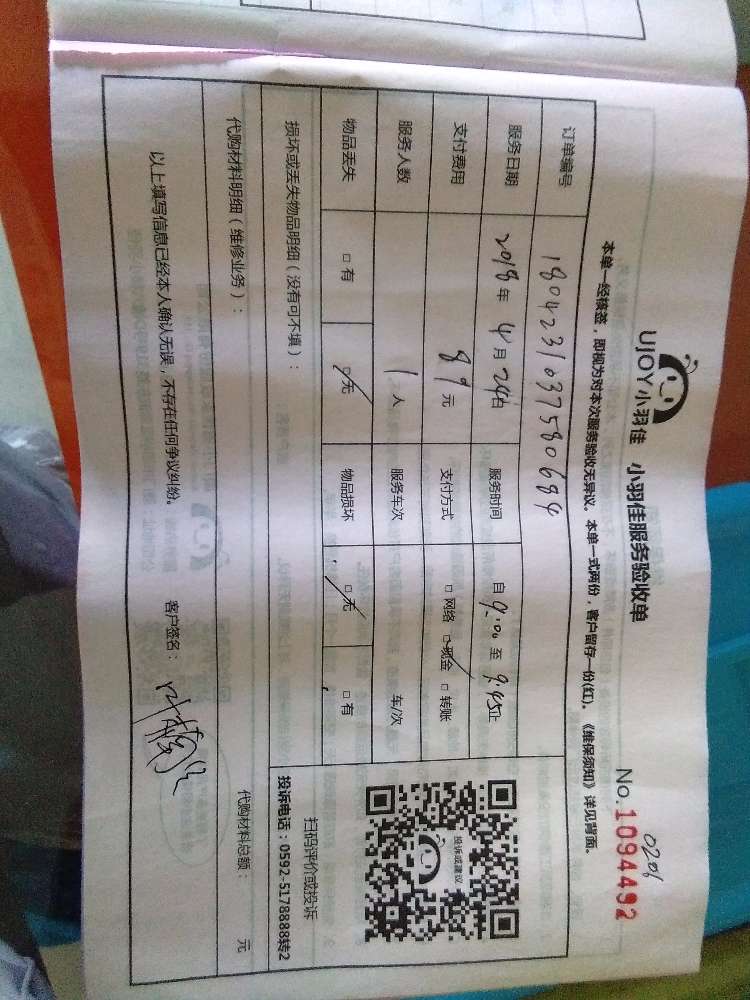 UJOY小羽佳 小羽佳服务验收单
0206
No.1094492
本单一经核签，即视为对本次服务验收无异议。本单一式两份，客户留存一份(红)。《维保须知》详见背面。
订单编号 1804231037580684
服务日期 2018年4月24日 服务时间 自9:00至9:45止
支付费用 89元 支付方式 □网络 □现金 □转账
服务人数 1人 服务车次 车/次
物品丢失 □有 □无 物品损坏 □无 □有
损坏或丢失物品明细（没有可不填）：
投诉或建议
扫码评价或投诉
投诉电话：0592-5178888转2
代购材料明细（维修业务）：
代购材料总额： 元
以上填写信息已经本人确认无误，不存在任何争议纠纷。 客户签名：